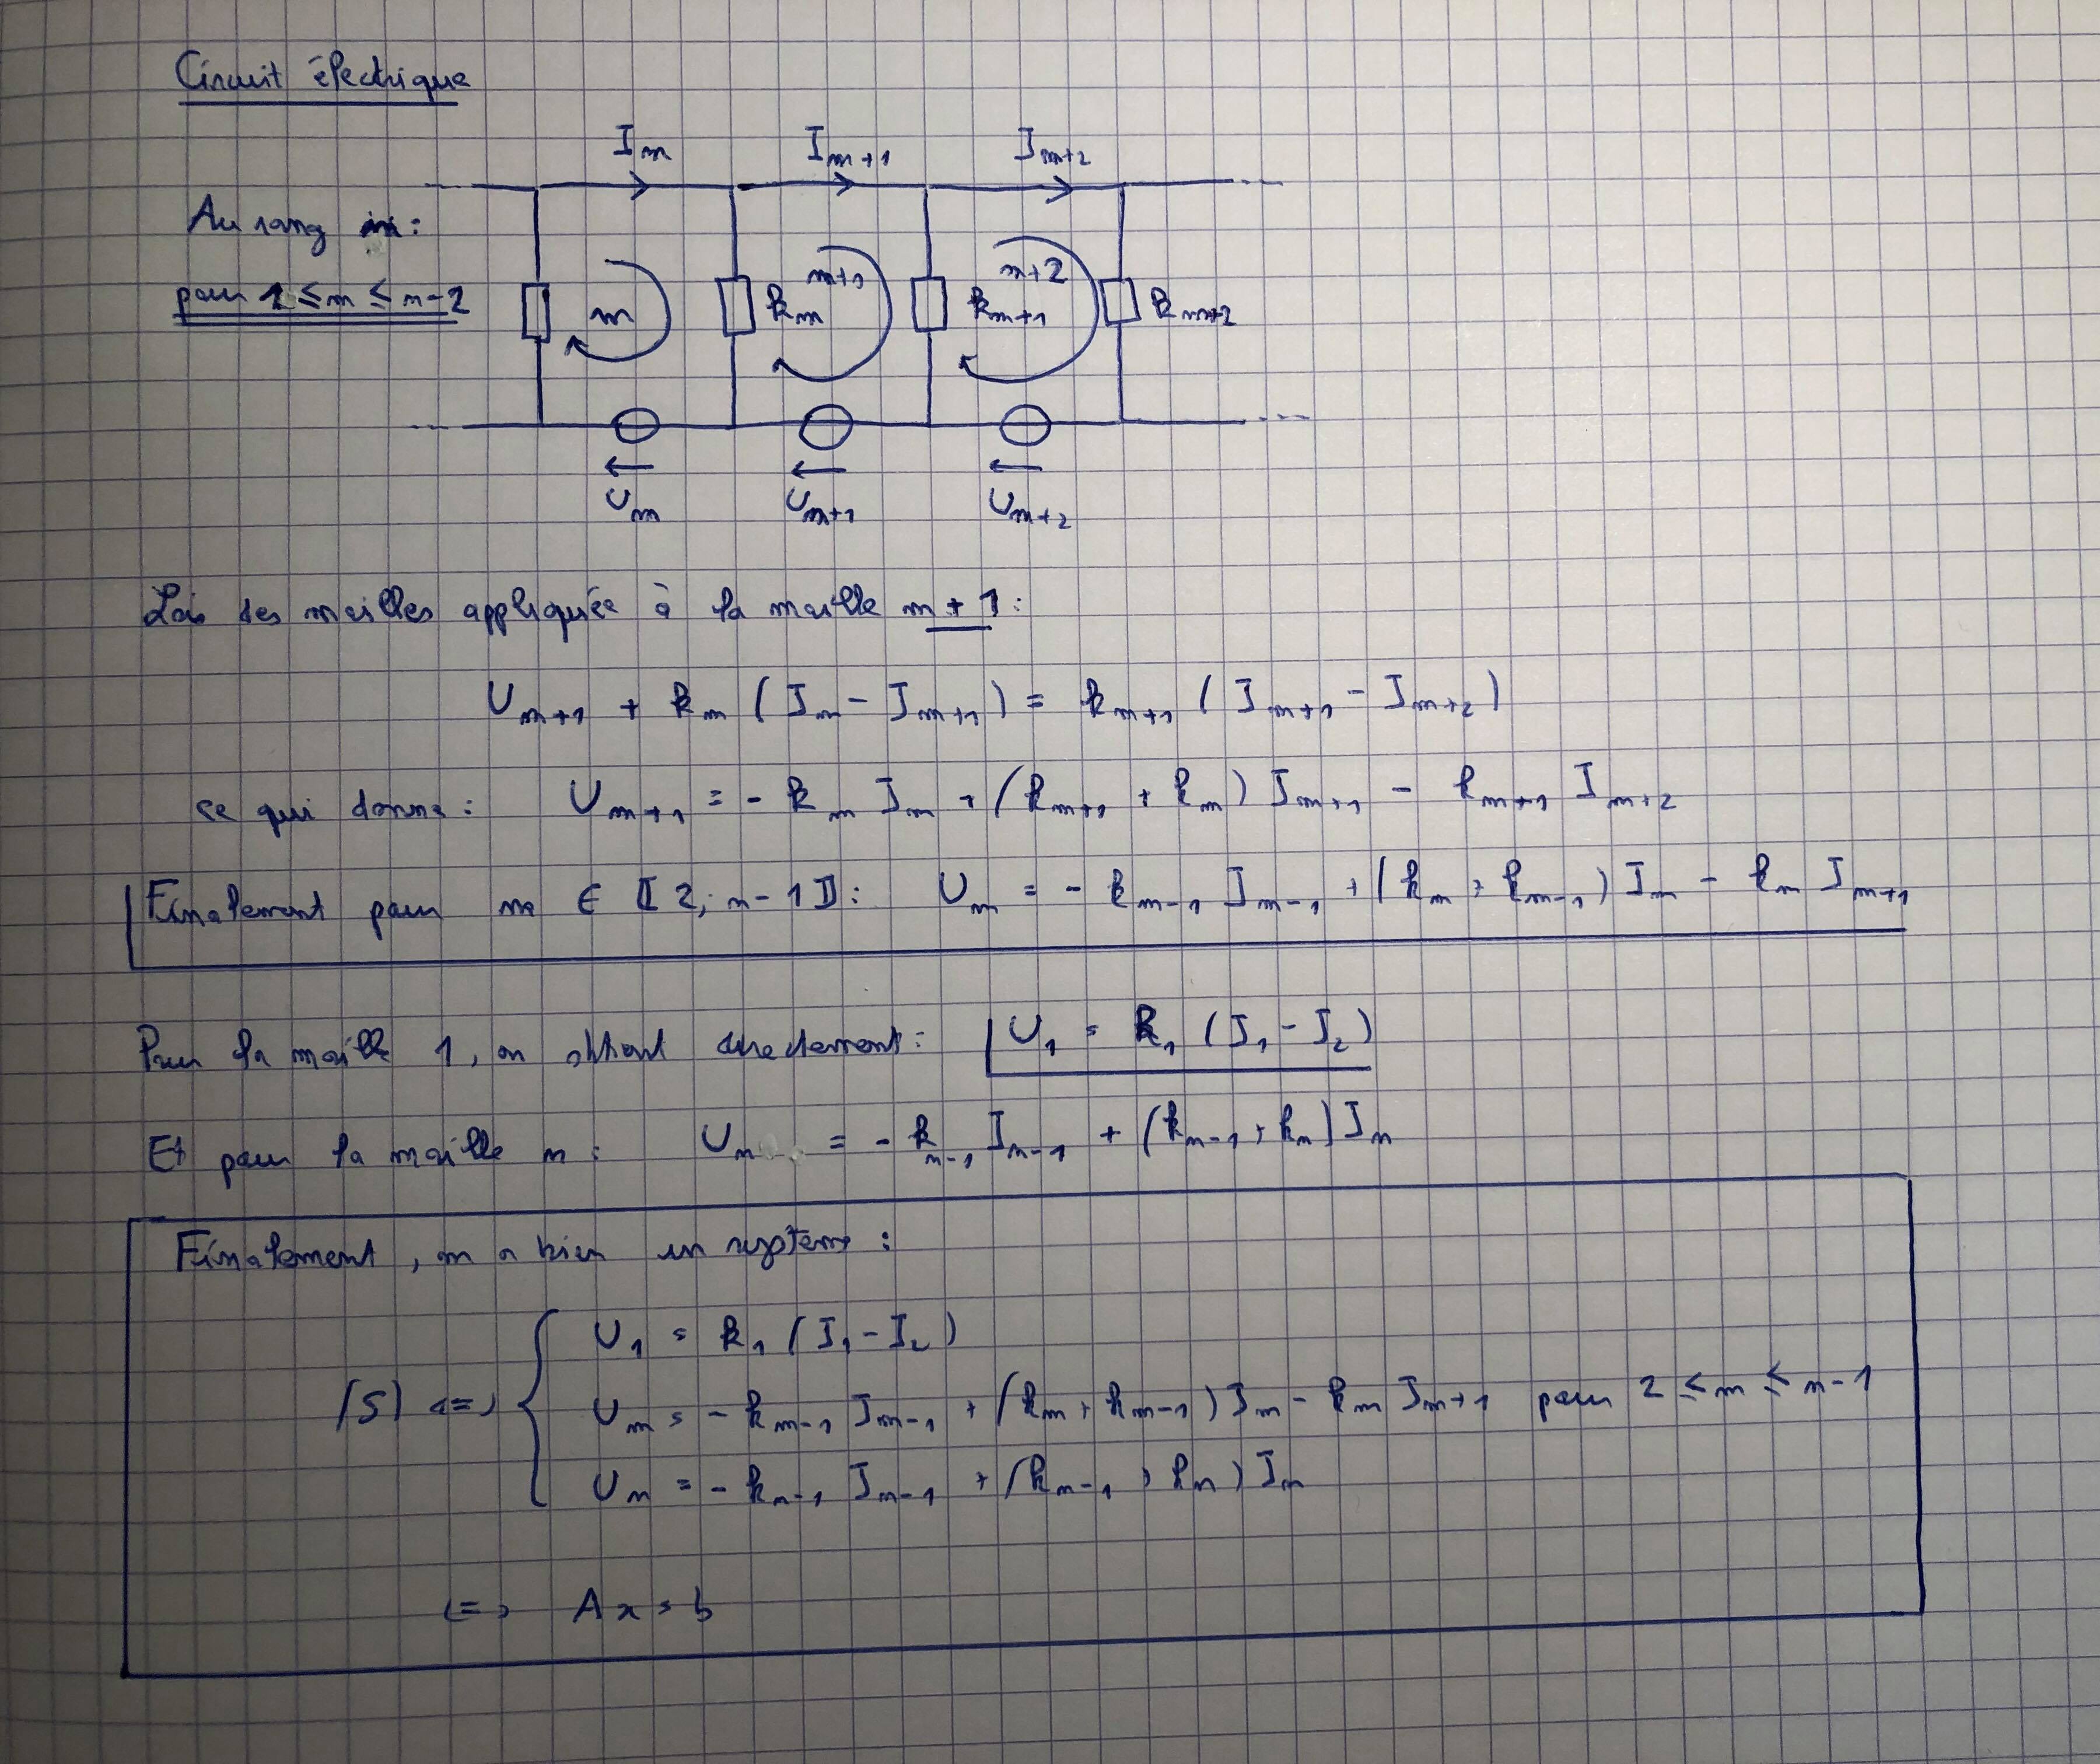 Circuit électrique
I_m I_{m+1} I_{m+2}
Au rang m :
pour 1 ≤ m ≤ n-2
m R_m m+1 R_{m+1} m+2 R_{m+2}
U_m U_{m+1} U_{m+2}
Loi des mailles appliquée à la maille m+1 :
U_{m+1} + R_m (I_m - I_{m+1}) = R_{m+1} (I_{m+1} - I_{m+2})
ce qui donne : U_{m+1} = - R_m I_m + (R_{m+1} + R_m) I_{m+1} - R_{m+1} I_{m+2}
Finalement pour m ∈ ⟦2; n-1⟧ : U_m = - R_{m-1} I_{m-1} + (R_m + R_{m-1}) I_m - R_m I_{m+1}
Pour la maille 1, on obtient directement : U_1 = R_1 (I_1 - I_2)
Et pour la maille n : U_n = - R_{n-1} I_{n-1} + (R_{n-1} + R_n) I_n
Finalement, on a bien un système :
U_1 = R_1 (I_1 - I_2)
(S) <=> { U_m = - R_{m-1} I_{m-1} + (R_m + R_{m-1}) I_m - R_m I_{m+1} pour 2 ≤ m ≤ n-1
U_n = - R_{n-1} I_{n-1} + (R_{n-1} + R_n) I_n
<=> Ax = b